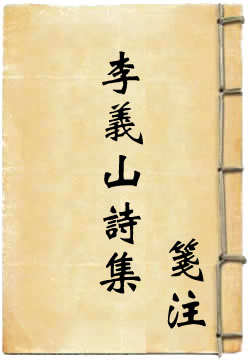 李義山詩集
箋注